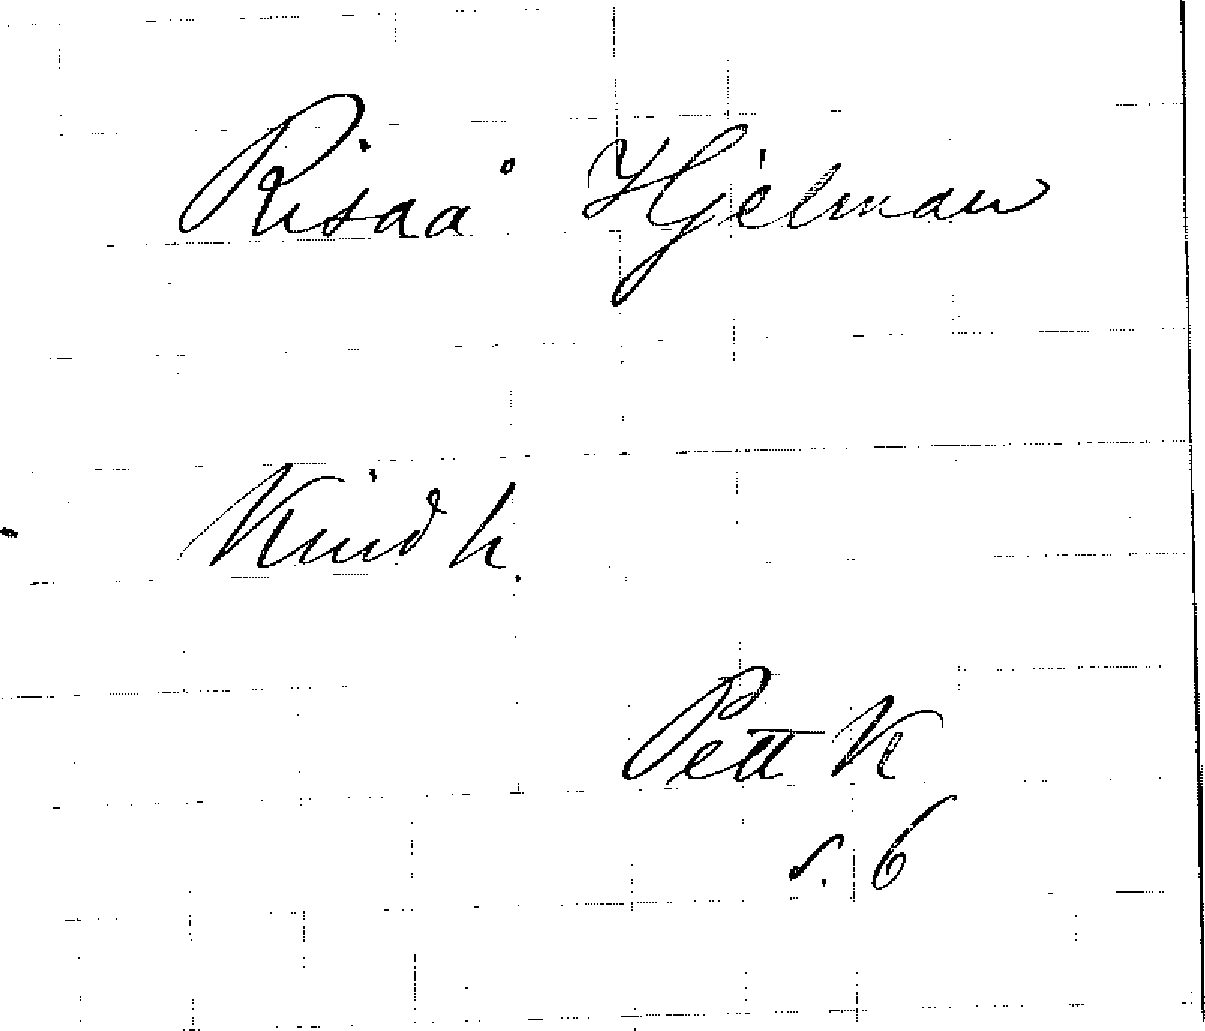 Risaå Hjelman
Kind h.
Pett K
s. 6